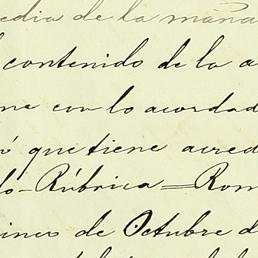 edia de la mañan
contenido de la a
ne con lo acordad
que tiene acred
do-Rúbrica=Rom
ines de Octubre d